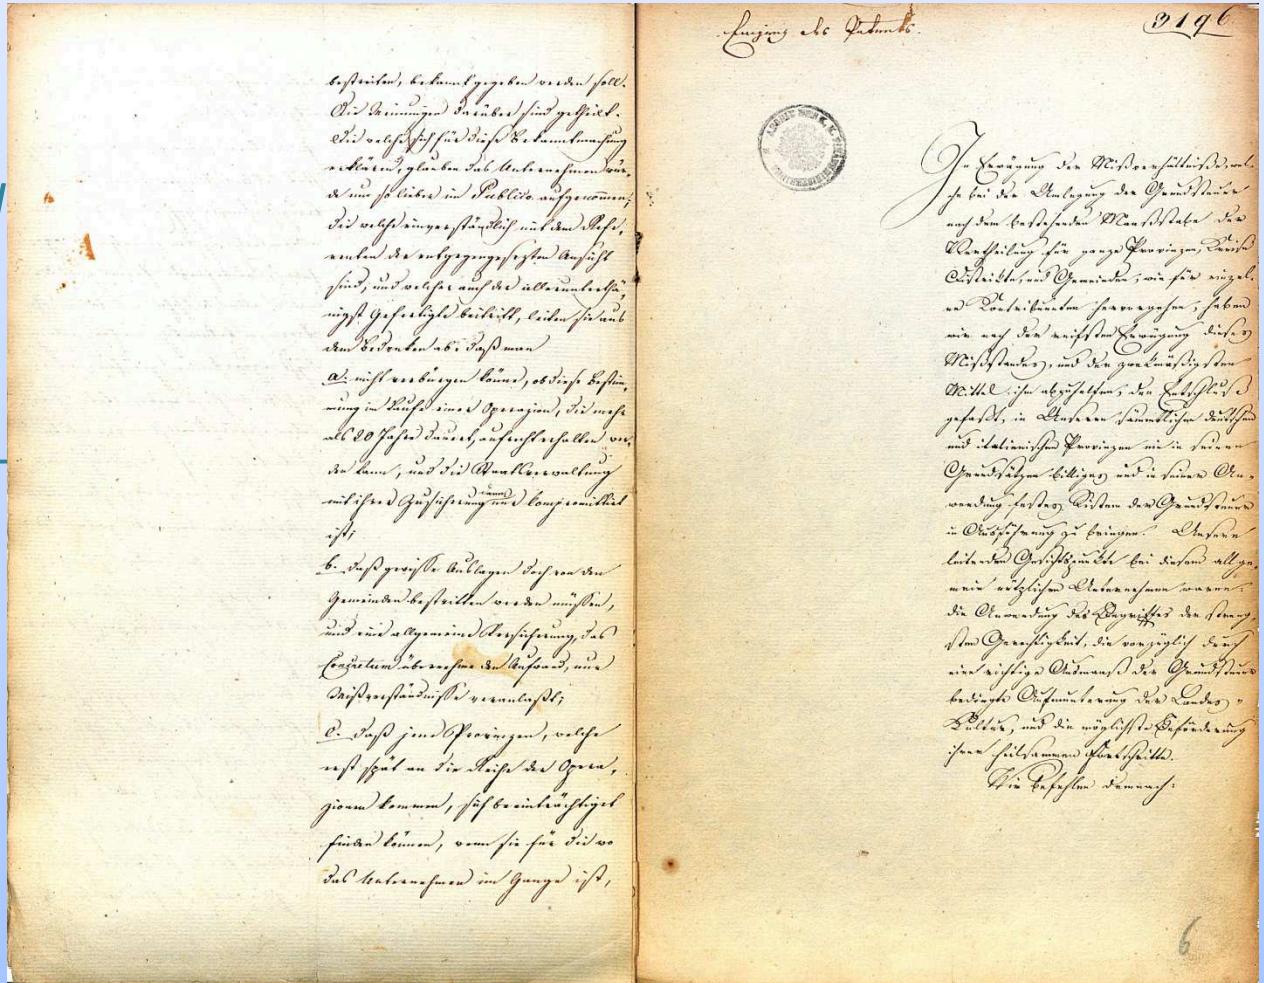 bestreiten, bekannt gegeben werden soll.
Die Meinungen darüber sind getheilt.
Die welche sich für diese Bekanntmachung
erklären, glauben das Unternehmen wür-
de um so lieber im Publico aufgenommen;
Die welche einverständlich mit dem Refe-
renten der entgegengesezten Ansicht
sind, und welcher auch der allerunterthä-
nigst Gefertigte beitritt, leiten sie aus
dem Bedenken ab: daß man
a. nicht verbürgen könne, ob diese Bestim-
mung im Laufe einer Operazion, die mehr
als 20 Jahre dauert, aufrecht erhalten wer-
den kann, und die Staatsverwaltung
mit ihrer Zusicherung dann nur kompromittirt
ist;
b. daß gewisse Auslagen doch von den
Gemeinden bestritten werden müssen,
und eine allgemeine Versicherung, das
übernehme den Aufwand, nur
Mißverständnisse veranlaßt;
c. daß jene Provinzen, welche
erst spät an die Reihe der Opera-
zionen kommen, sich beeinträchtiget
finden können, wenn sie für die wo
das Unternehmen im Gange ist,
Eingang des Patents.
3196
In Erwägung der Mißverhältnisse, wel-
che bei der Umlegung der Grundsteuer
nach dem bestehenden Maaßstabe der
Vertheilung für ganze Provinzen, Kreise
Distrikte, und Gemeinden, wie für einzel-
ne Kontribuenten hervorgehen, haben
wir nach der reifsten Erwägung dieses
Mißstandes, und der zweckmäßigsten
Mittel ihm abzuhelfen, den Entschluß
gefaßt, in Unseren sämmtlichen deutschen
und italienischen Provinzen ein in seinen
Grundsätzen billiges und in seiner An-
wendung festes Sistem der Grundsteuer
in Ausführung zu bringen. Unsere
leitenden Gesichtspunkte bei diesem allge-
mein nützlichen Unternehmen waren:
die Anwendung des Begriffes der streng-
sten Gerechtigkeit, die vorzüglich durch
eine richtige Ausmaaß der Grundsteuer
bedingte Aufmunterung der Landes-
Kultur, und die möglichste Beförderung
ihrer heilsamen Fortschritte.
Wir befehlen demnach:
6